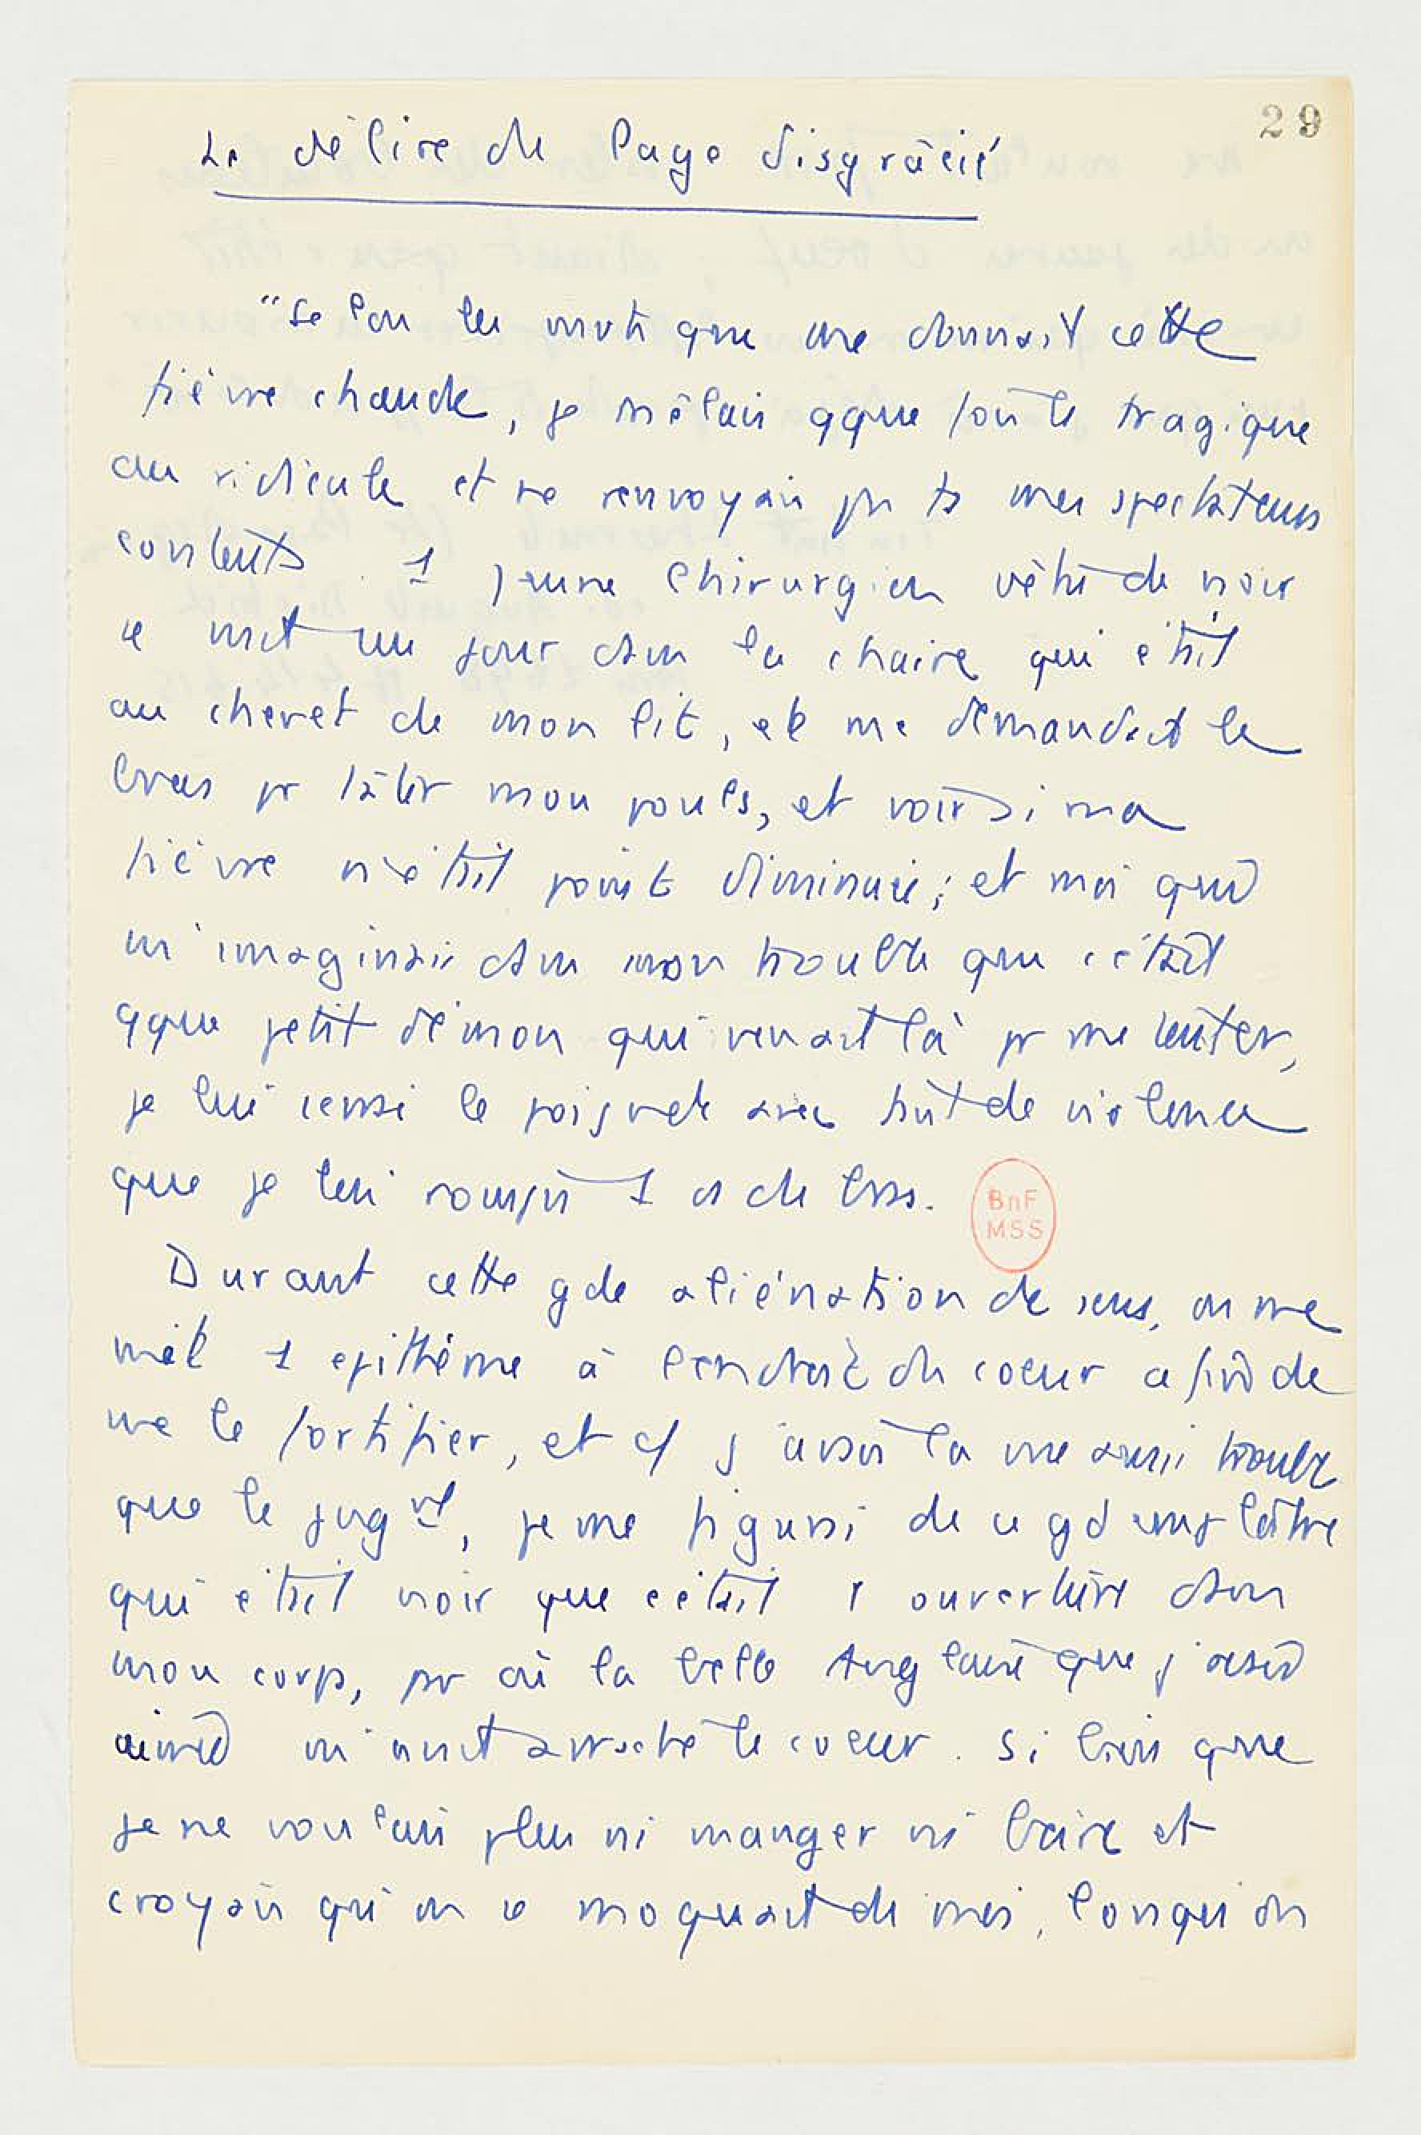 29
Le délire du Page disgracié
"Selon les mots que me donnait cette
fièvre chaude, je mêlais qque fois le tragique
au ridicule et ne renvoyais pas ts mes spectateurs
contents. 1 jeune Chirurgien vêtu de noir
se mit un jour dans la chaire qui était
au chevet de mon lit, et me demandait le
bras pr tâter mon pouls, et voir si ma
fièvre n'était point diminuée; et moi qui
m'imaginais dans mon trouble que c'était
qque petit démon qui venait là pr me tenter,
je lui le poignet avec tant de violence
que je lui rompis 1 os du bras.
BnF
MSS
Durant cette gde aliénation de sens, on me
mit 1 epithème à l'endroit du coeur afin de
me le fortifier, et j'avais la vue aussi trouble
que le jugmt, je me figurai de ce gd emplâtre
qui était noir que c'était 1 ouverture dans
mon corps, par où la belle Anglaise que j'avais
aimée m'avait arraché le coeur. Si bien que
je ne voulais plus ni manger ni boire et
croyais qu'on se moquait de moi, lorsqu'on